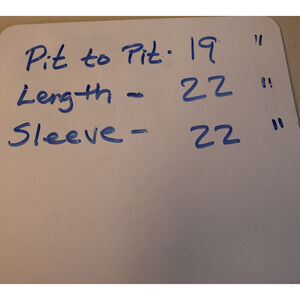 Pit to Pit. 19 "
Length - 22 "
Sleeve - 22 "